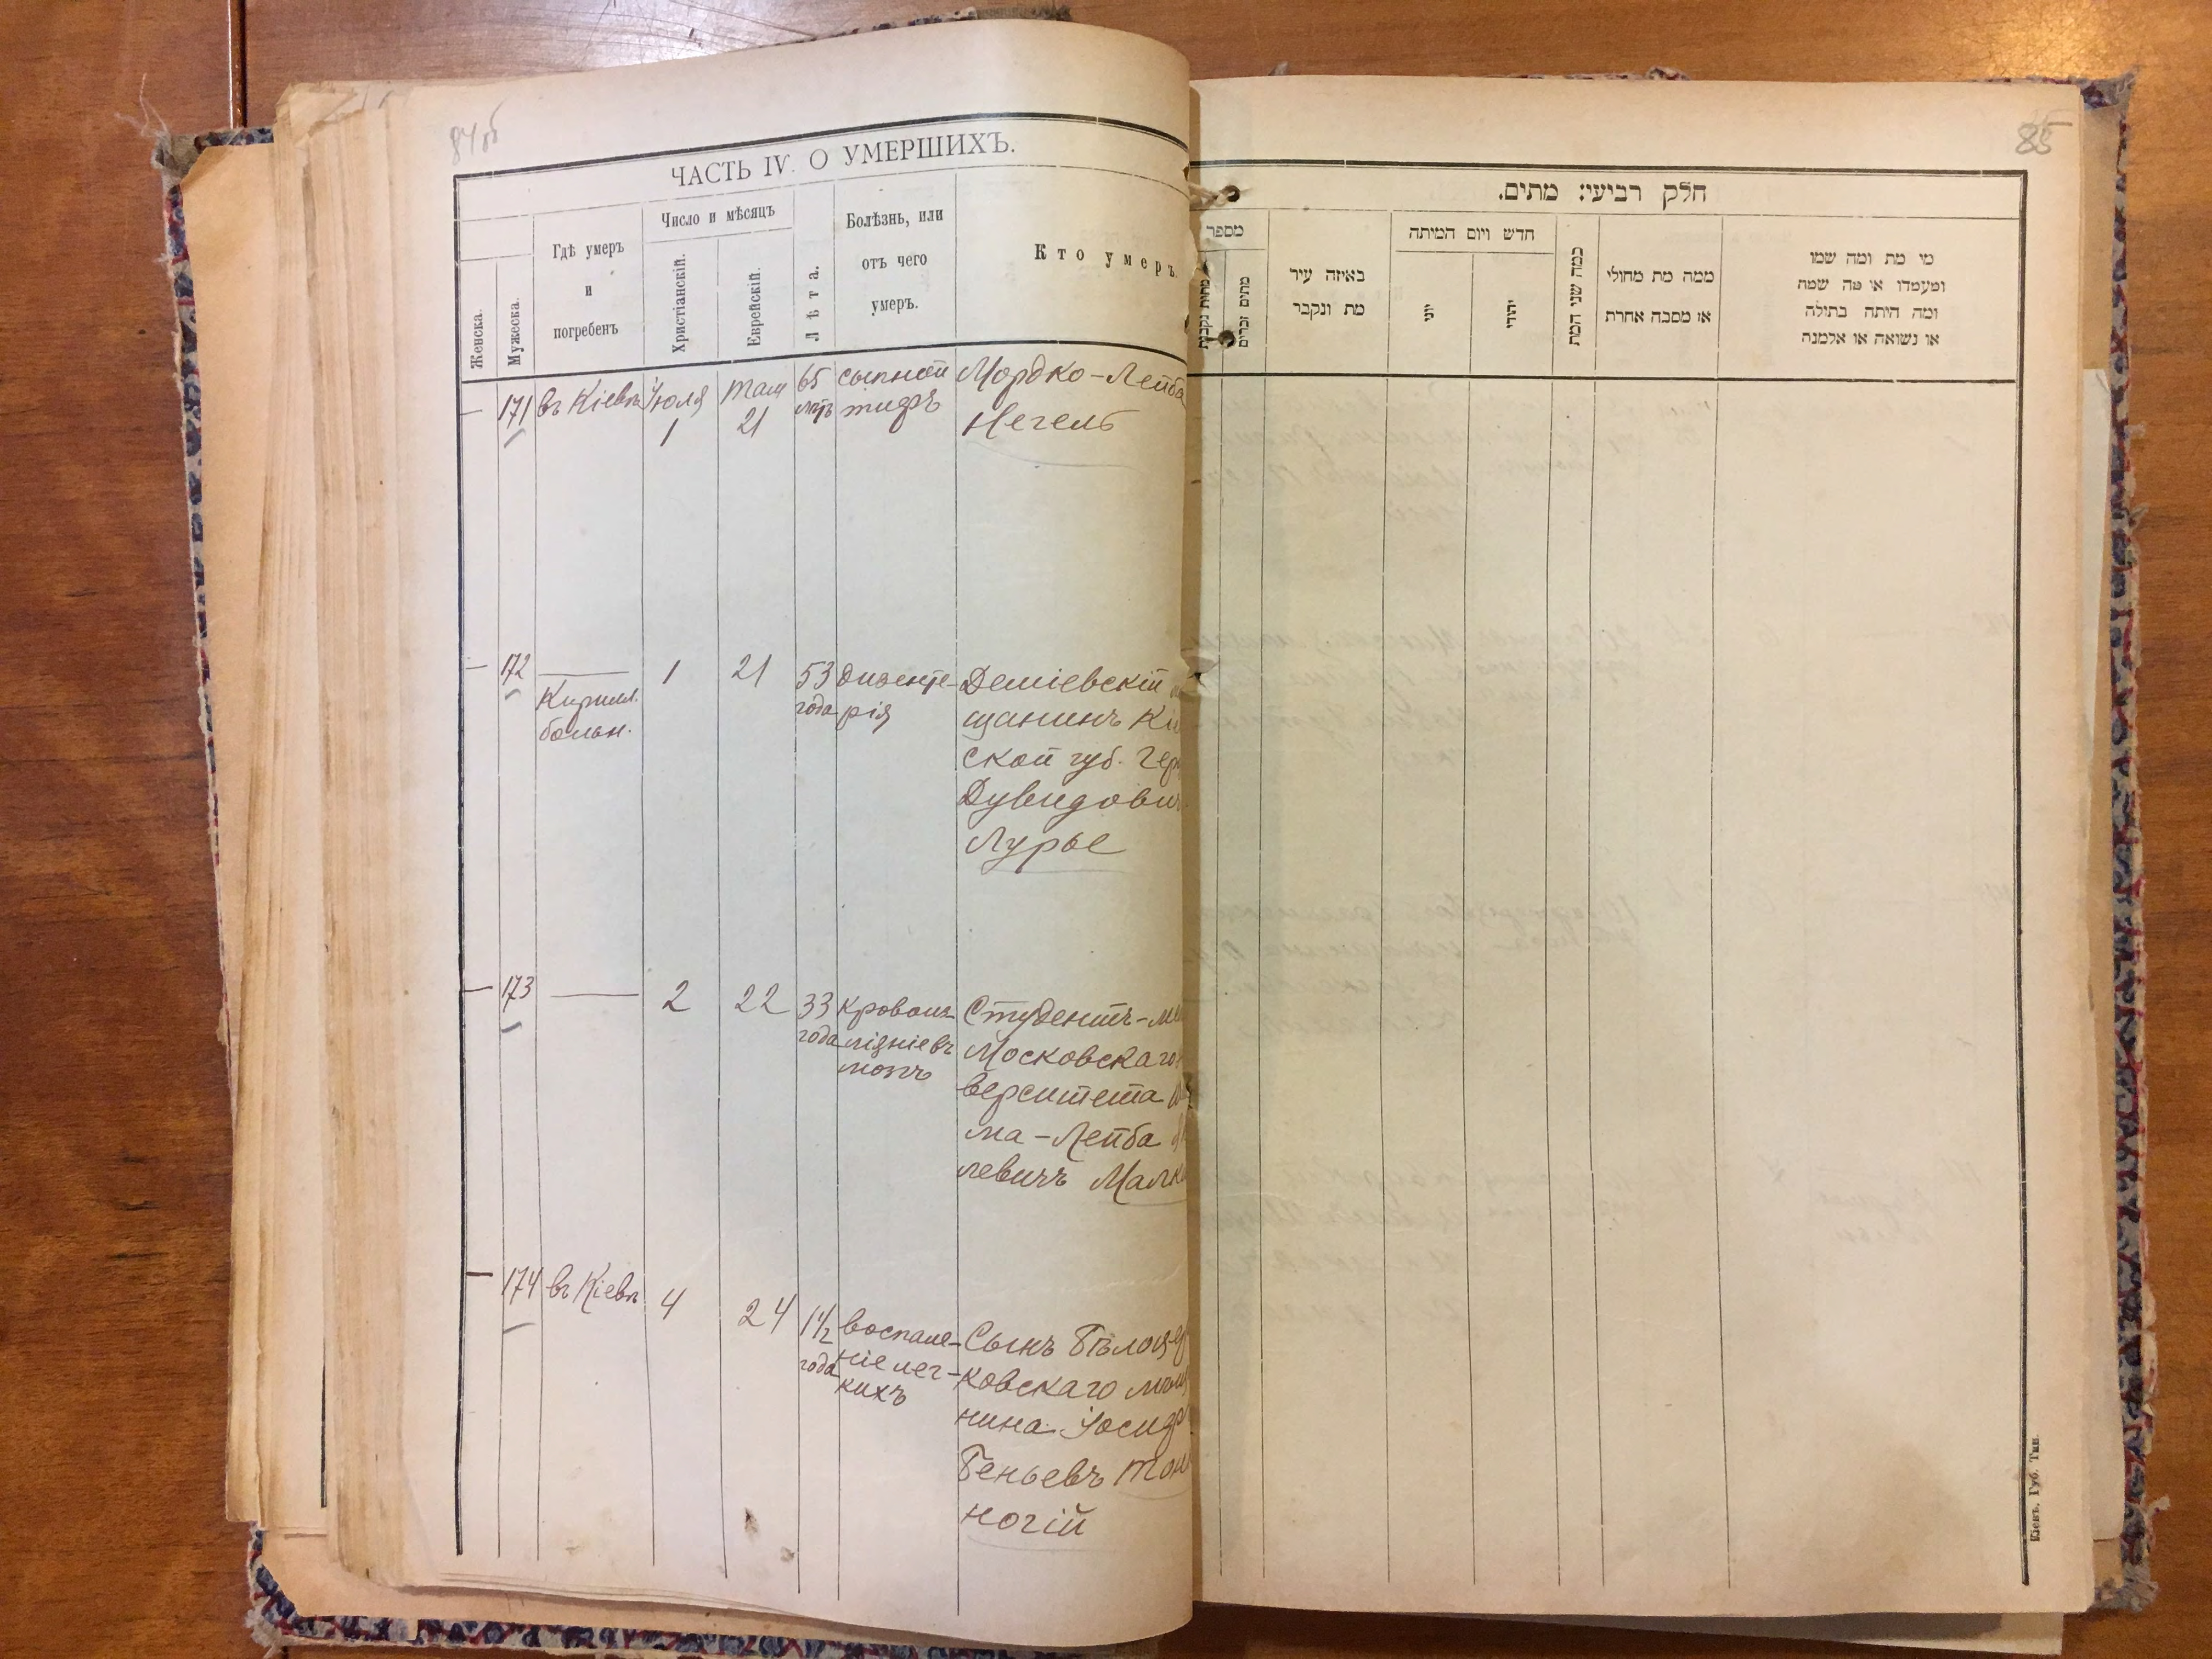 84об
ЧАСТЬ IV. О УМЕРШИХЪ.
Женска.
Мужеска.
Гдѣ умеръ
и
погребенъ
Число и мѣсяцъ
Христіанскій.
Еврейскій.
Лѣта.
Болѣзнь, или
отъ чего
умеръ.
Кто умеръ.
— 171 въ Кіевѣ Іюля 1 Там 21 65 лѣтъ
сыпной
тифъ
Мордко-Лейба
Негель
— 172 — 1 21 53 года
Кирил.
больн.
дизенте-
рія
Деміевскій
щанинъ Кіе
ской губ. Гер
Дувидович
Лурье
— 173 — 2 22 33 года
кровоиз-
ліяніе въ
мозгъ
Студентъ-ме
Московскаго
верситета
ма-Лейба
левичъ Малк
— 174 въ Кіевѣ 4 24 1½ года
воспале-
ніе лег-
кихъ
Сынъ Бѣлоцер
ковскаго мѣщ
нина Іосиф
Беньевъ Тон
ногій
85
חלק רביעי: מתים.
מספר
מתות נקבות
מתים זכרים
באיזה עיר
מת ונקבר
חדש ויום המיתה
יוני
יהודי
כמה שני המת
ממה מת מחולי
או מסבה אחרת
מי מת ומה שמו
ומעמדו או מה שמה
ומה היתה בתולה
או נשואה או אלמנה
Кіевъ. Губ. Тип.